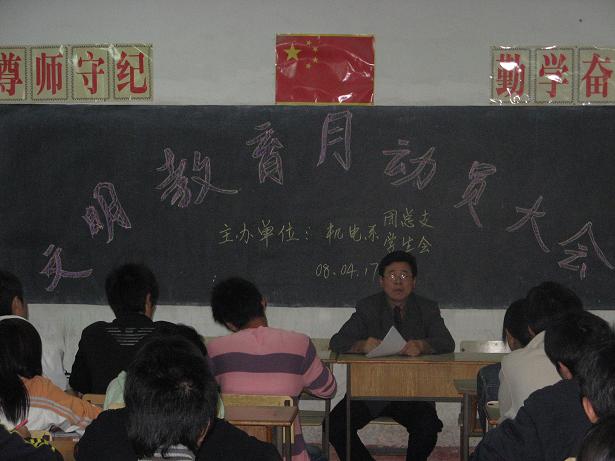 尊师守纪
勤学奋
文明教育月动员大会
主办单位：机电系 团总支
学生会
08.04.17